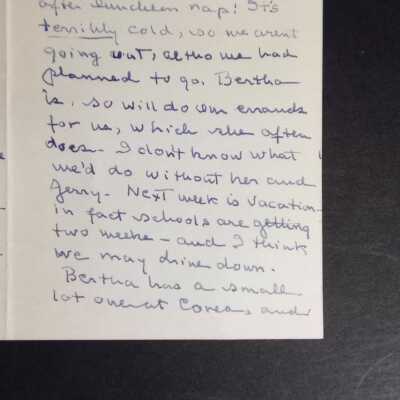 after luncheon nap! It's
terribly cold, so we aren't
going out, altho we had
planned to go. Bertha
is, so will do our errands
for us, which she often
does. I don't know what
we'd do without her and
Jerry. Next week is vacation -
in fact schools are getting
two weeks - and I think
we may drive down.
Bertha has a small
lot over at and